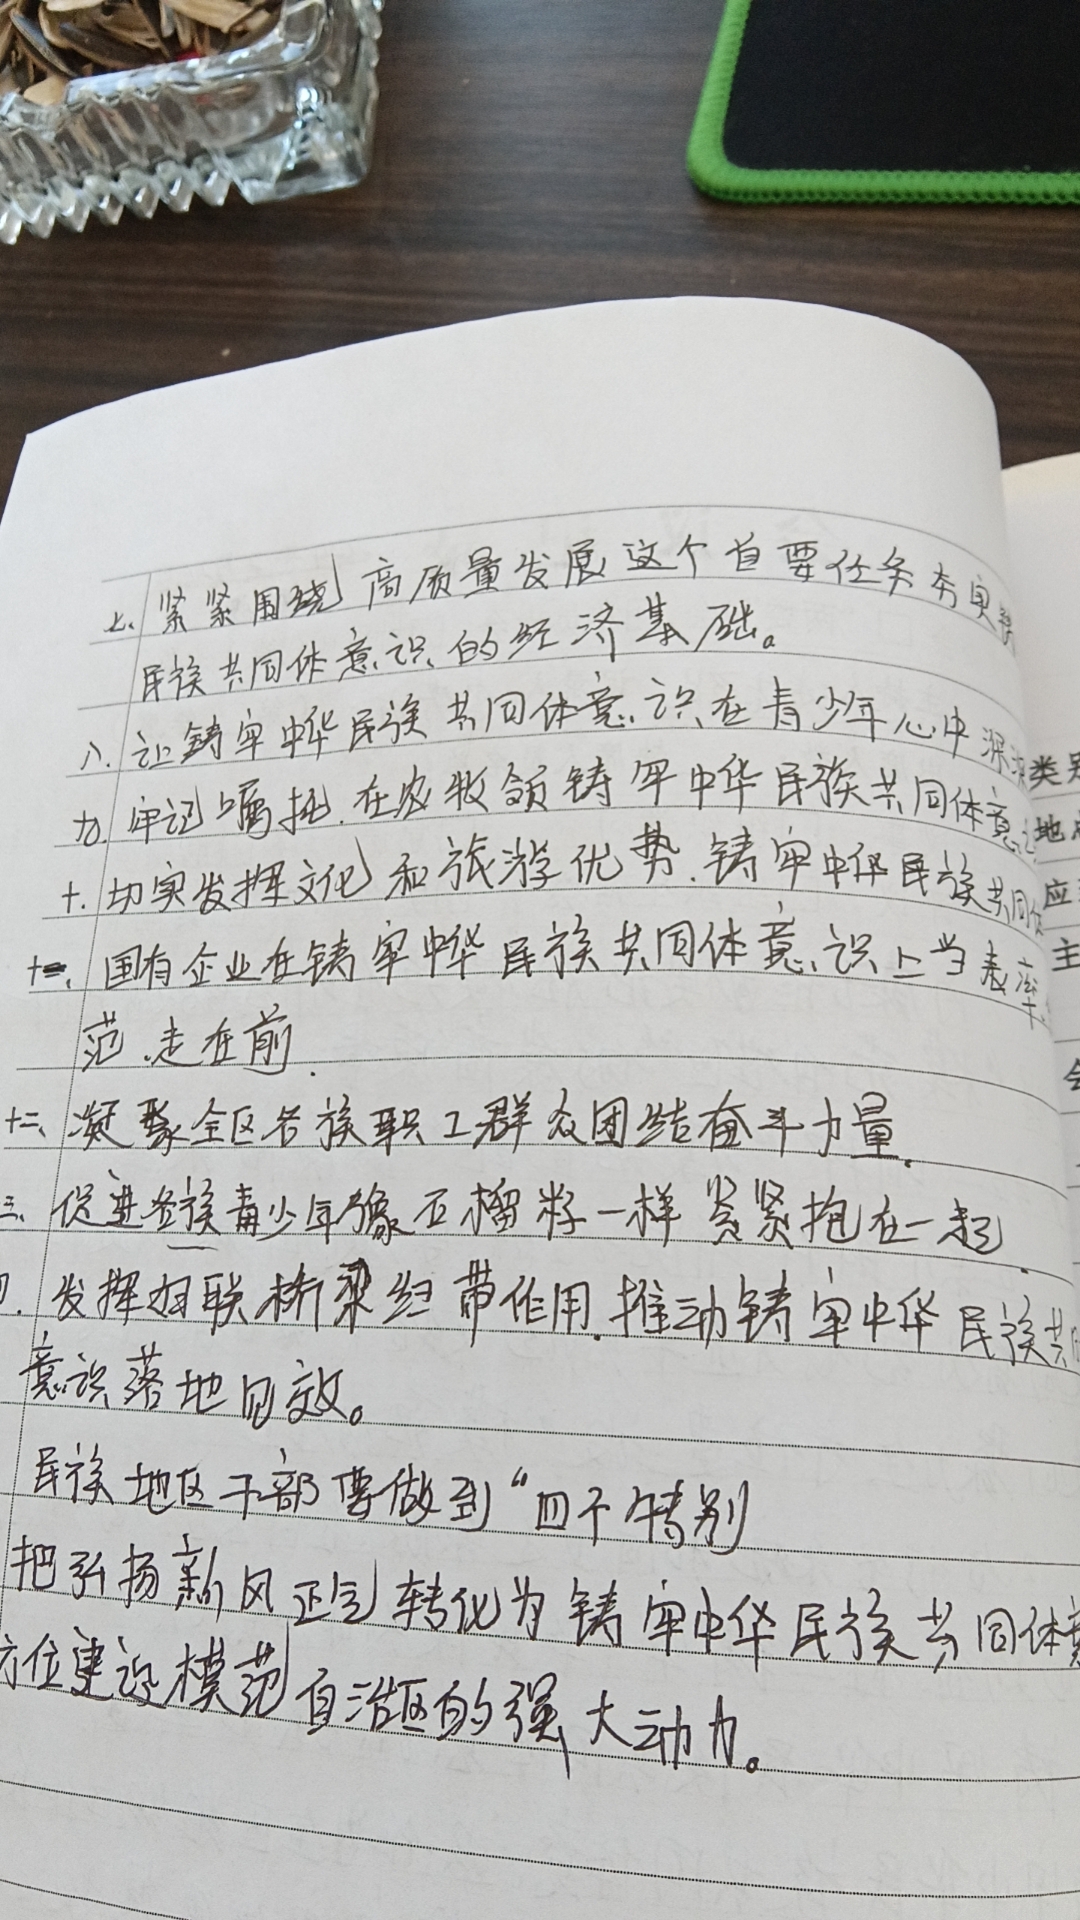 七、紧紧围绕高质量发展这个首要任务夯实铸
民族共同体意识的经济基础。
八、让铸牢中华民族共同体意识在青少年心中深深
九、牢记嘱托.在农牧领铸牢中华民族共同体意
十.切实发挥文化和旅游优势.铸牢中华民族共同体
十一、国有企业在铸牢中华民族共同体意识上当表率、
范.走在前.
十二、凝聚全区各族职工群众团结奋斗力量.
三、促进各族青少年像石榴籽一样紧紧抱在一起.
发挥妇联桥梁纽带作用.推动铸牢中华民族共同
意识落地见效。
民族地区干部要做到“四个特别
把弘扬新风正气转化为铸牢中华民族共同体意
方位建设模范自治区的强大动力。
类别
地点
应
主
会